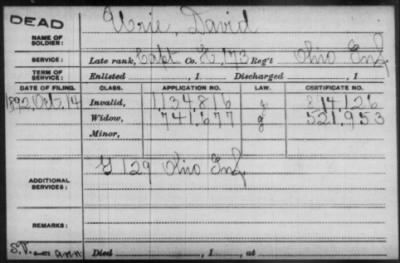 DEAD
NAME OF SOLDIER: Urie, David
SERVICE: Late rank, Capt Co. K, 173 Reg't Ohio Inf
TERM OF SERVICE: Enlisted , 1 Discharged , 1
DATE OF FILING. CLASS. APPLICATION NO. LAW. CERTIFICATE NO.
1892, Oct. 14 Invalid, 1,134,816 814,126
Widow, 741,677 g 521,953
Minor,
ADDITIONAL SERVICES: G 129 Ohio Inf
REMARKS:
Died , 1 , at